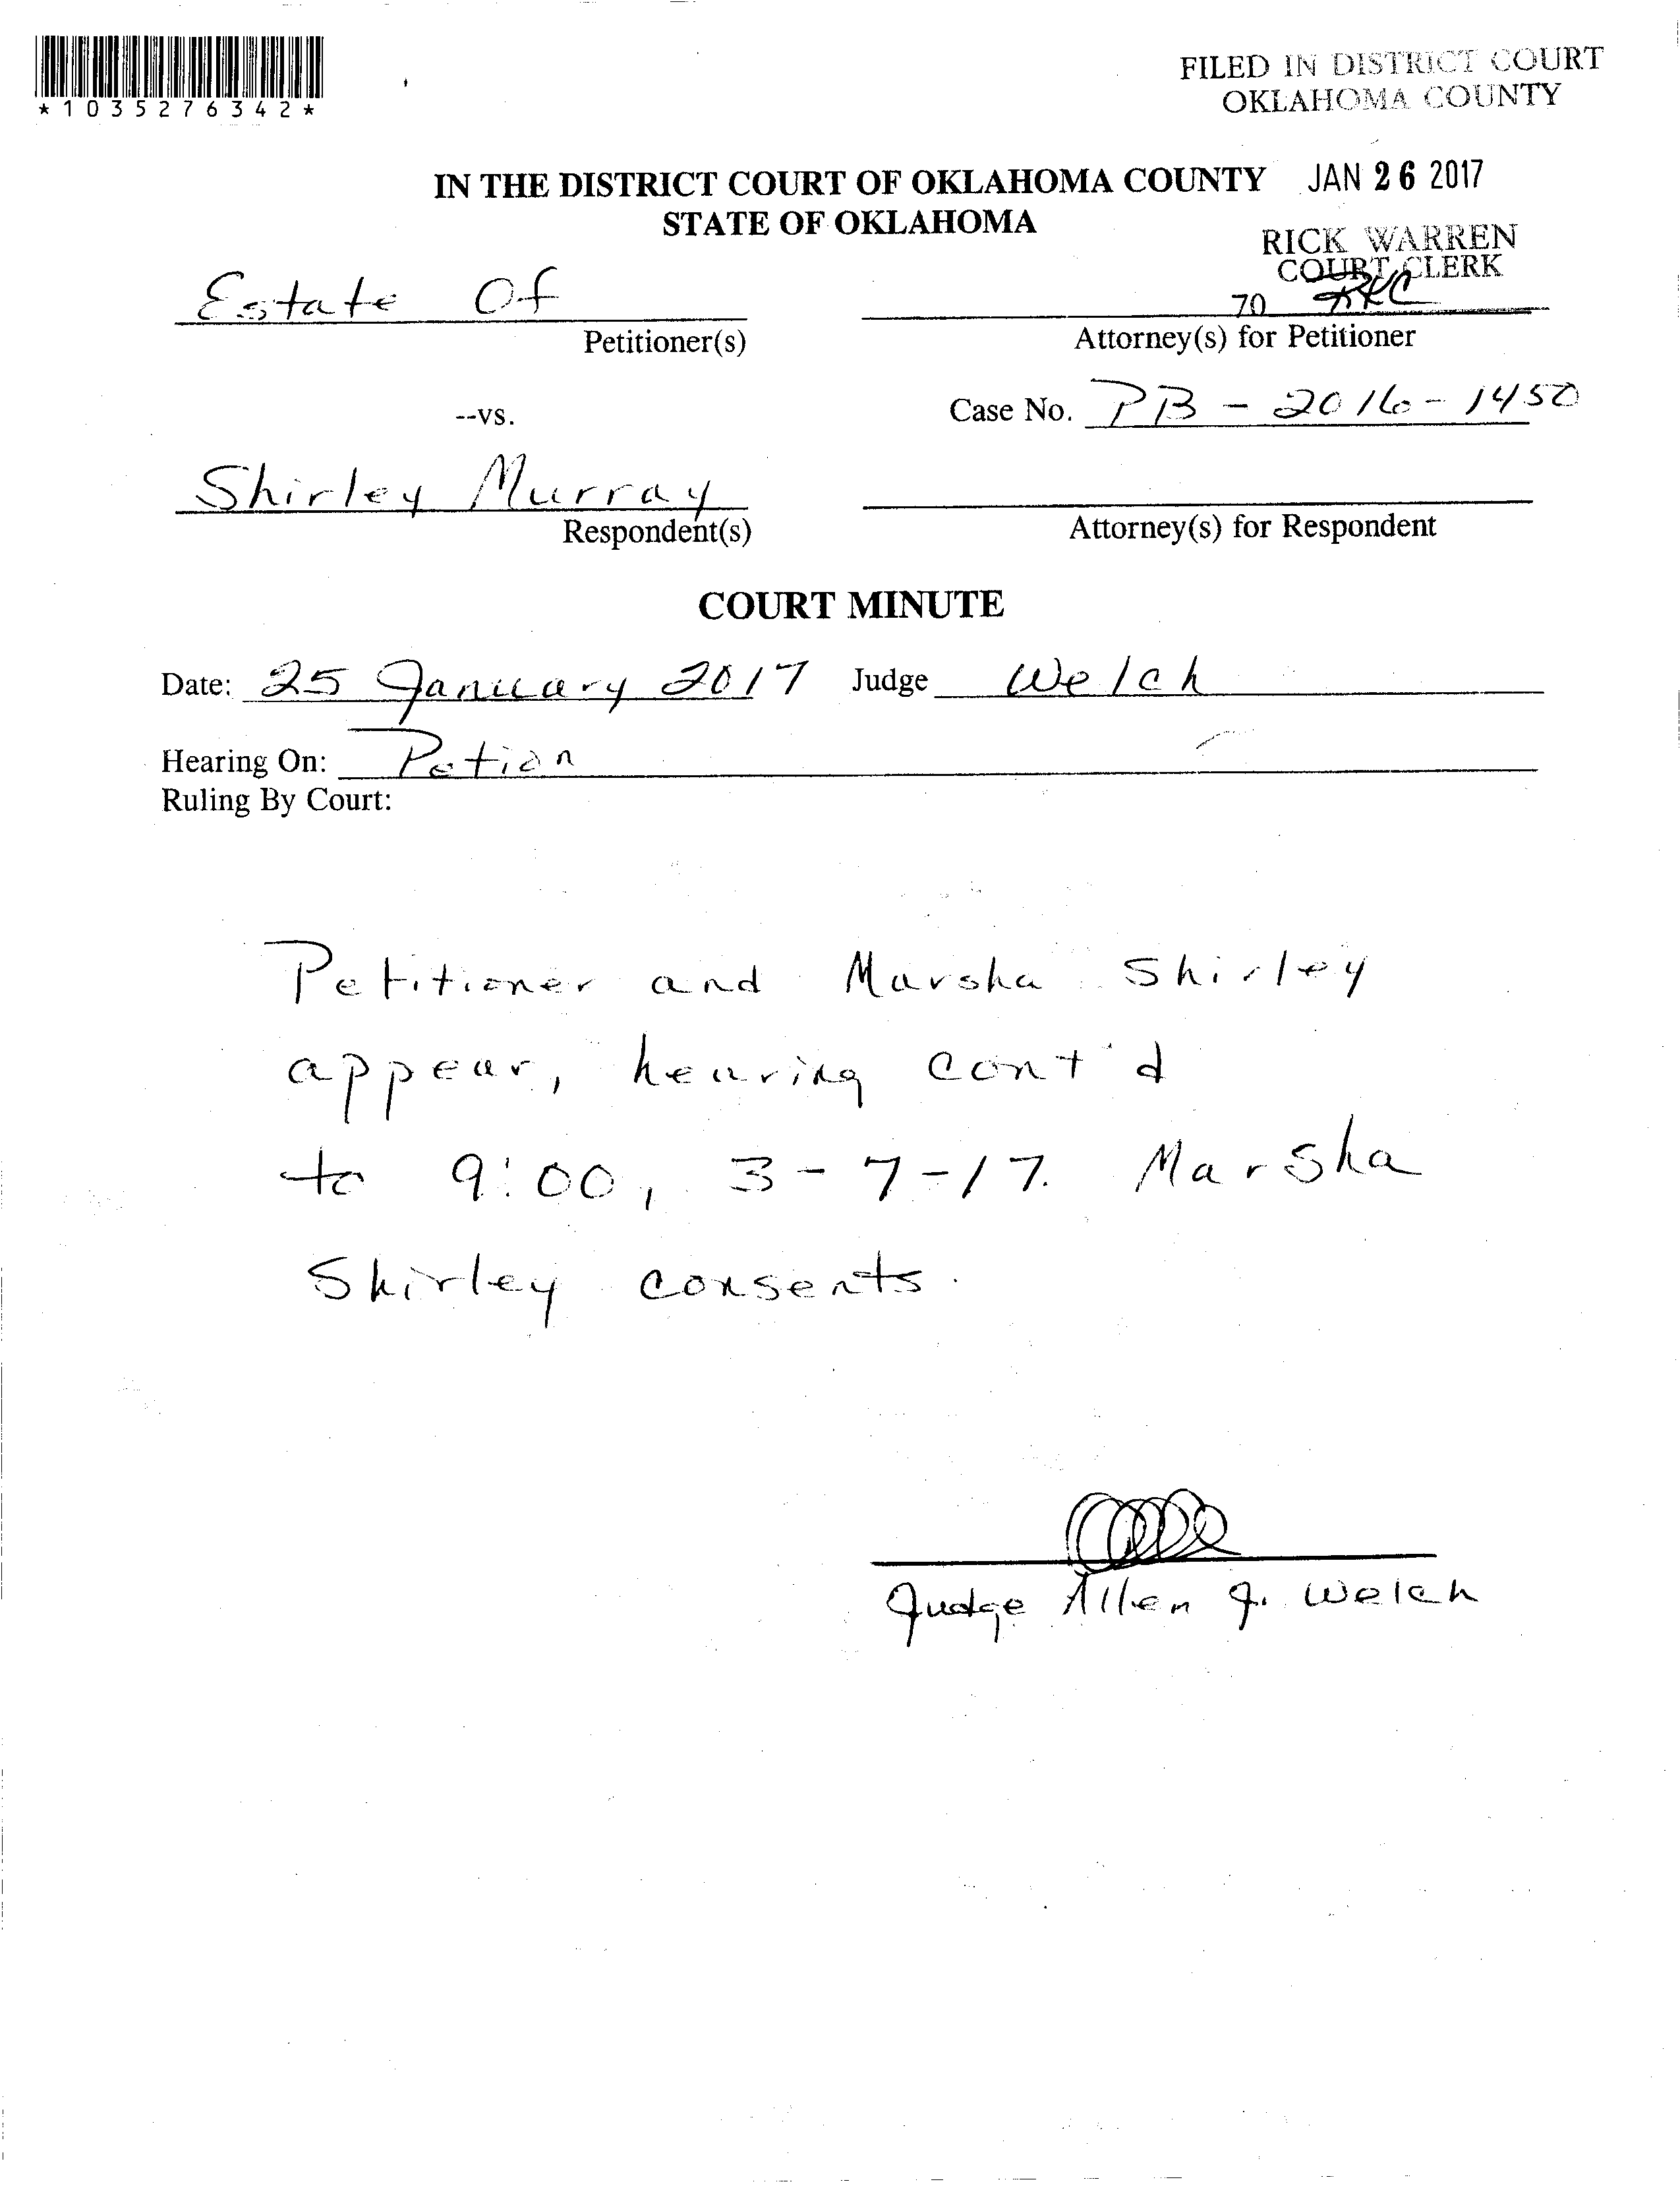 *1035276342*
FILED IN DISTRICT COURT
OKLAHOMA COUNTY
IN THE DISTRICT COURT OF OKLAHOMA COUNTY JAN 26 2017
STATE OF OKLAHOMA
RICK WARREN
COURT CLERK
Estate Of
70
Petitioner(s)
Attorney(s) for Petitioner
--vs.
Case No. PB - 2016 - 1450
Shirley Murray
Respondent(s)
Attorney(s) for Respondent
COURT MINUTE
Date: 25 January 2017 Judge Welch
Hearing On: Petion
Ruling By Court:
Petitioner and Marsha Shirley
appear, hearing cont'd
to 9:00, 3-7-17. Marsha
Shirley consents.
Judge Allen J. Welch